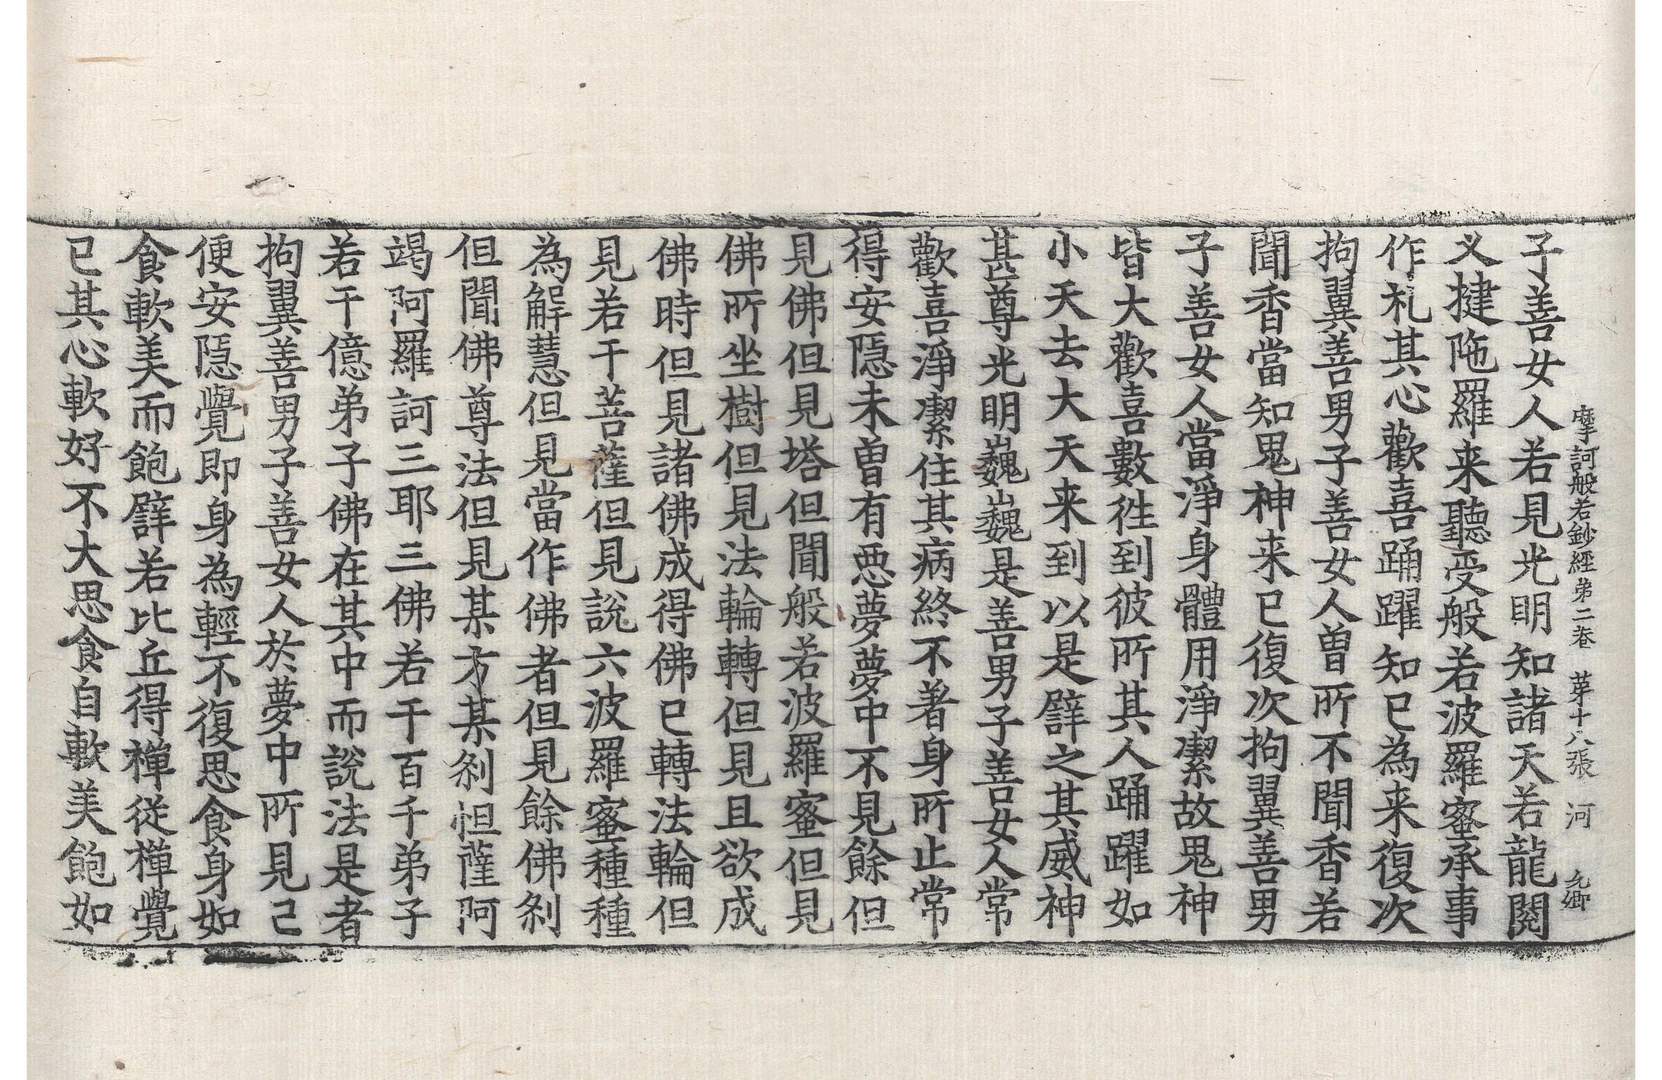 摩訶般若鈔經第二卷 苐十八張 河
子善女人若見光明知諸天若龍閱
叉揵陁羅来聽受般若波羅蜜承事
作礼其心歡喜踊躍知已為来復次
拘翼善男子善女人曽所不聞香若
聞香當知鬼神来已復次拘翼善男
子善女人當淨身體用淨潔故鬼神
皆大歡喜數徃到彼所其人踊躍如
小天去大天来到以是譬之其威神
甚尊光明巍巍是善男子善女人常
歡喜淨潔住其病終不著身所止常
得安隱未曽有悪夢夢中不見餘但
見佛但見塔但聞般若波羅蜜但見
佛所坐樹但見法輪轉但見且欲成
佛時但見諸佛成得佛已轉法輪但
見若干菩薩但見說六波羅蜜種種
為解慧但見當作佛者但見餘佛剎
但聞佛尊法但見某方某剎怛薩阿
竭阿羅訶三耶三佛若干百千弟子
若干億弟子佛在其中而說法是者
拘翼善男子善女人於夢中所見已
便安隱覺即身為輕不復思食身如
食軟美而飽譬若比丘得禪從禪覺
已其心軟好不大思食自軟美飽如